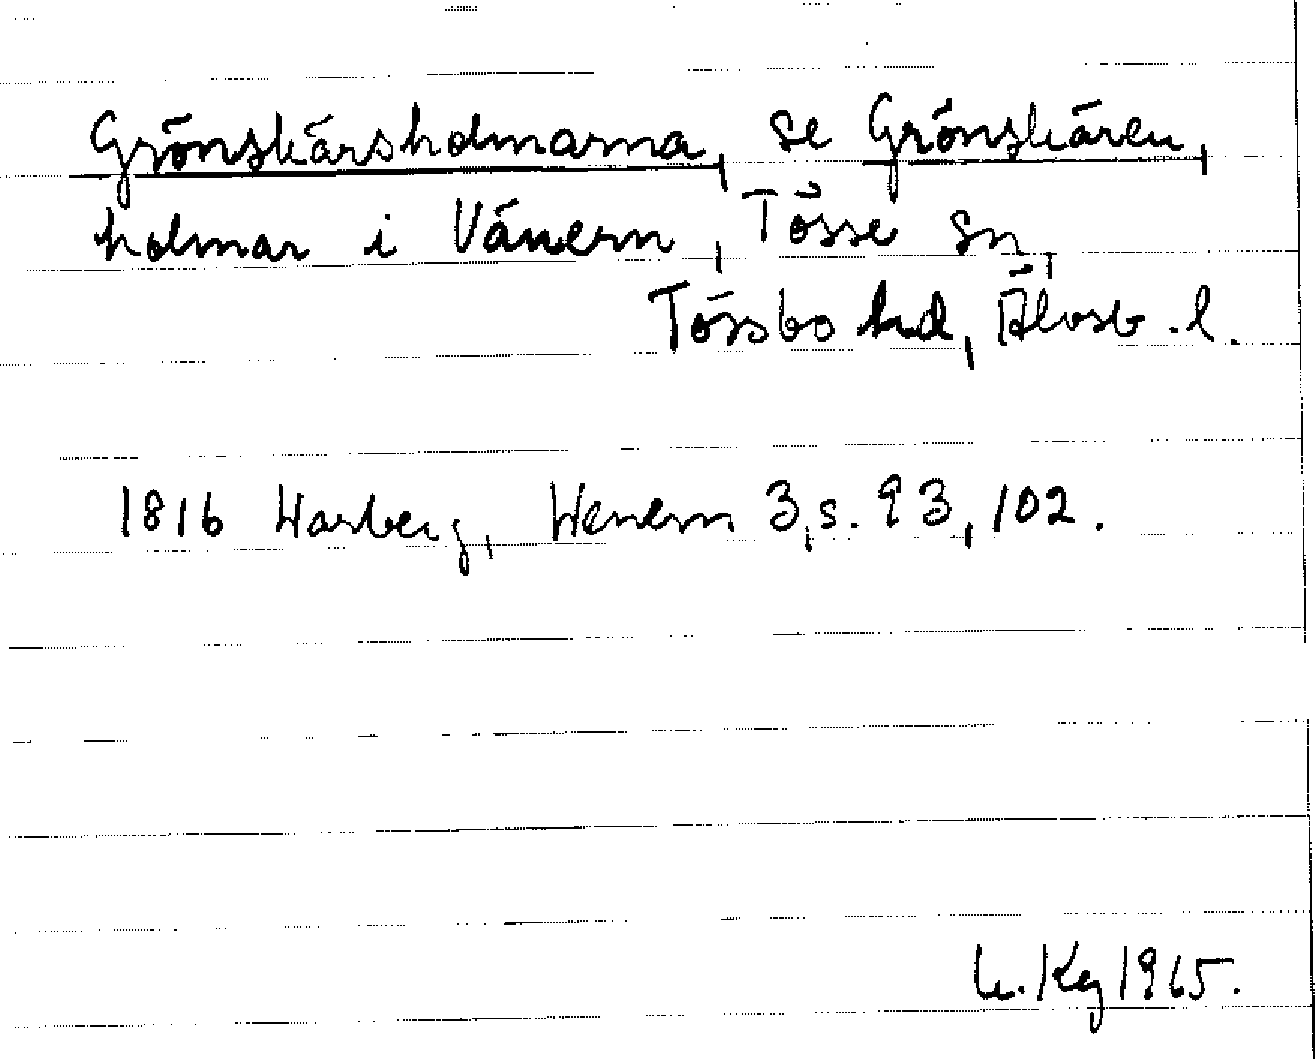 Grönskärsholmarna, se Grönskären,
holmar i Vänern, Tösse sn,
Tössbo hd, Älvsb. l.
1816 Warberg, Wenern 3, s. 93, 102.
Kg 1965.